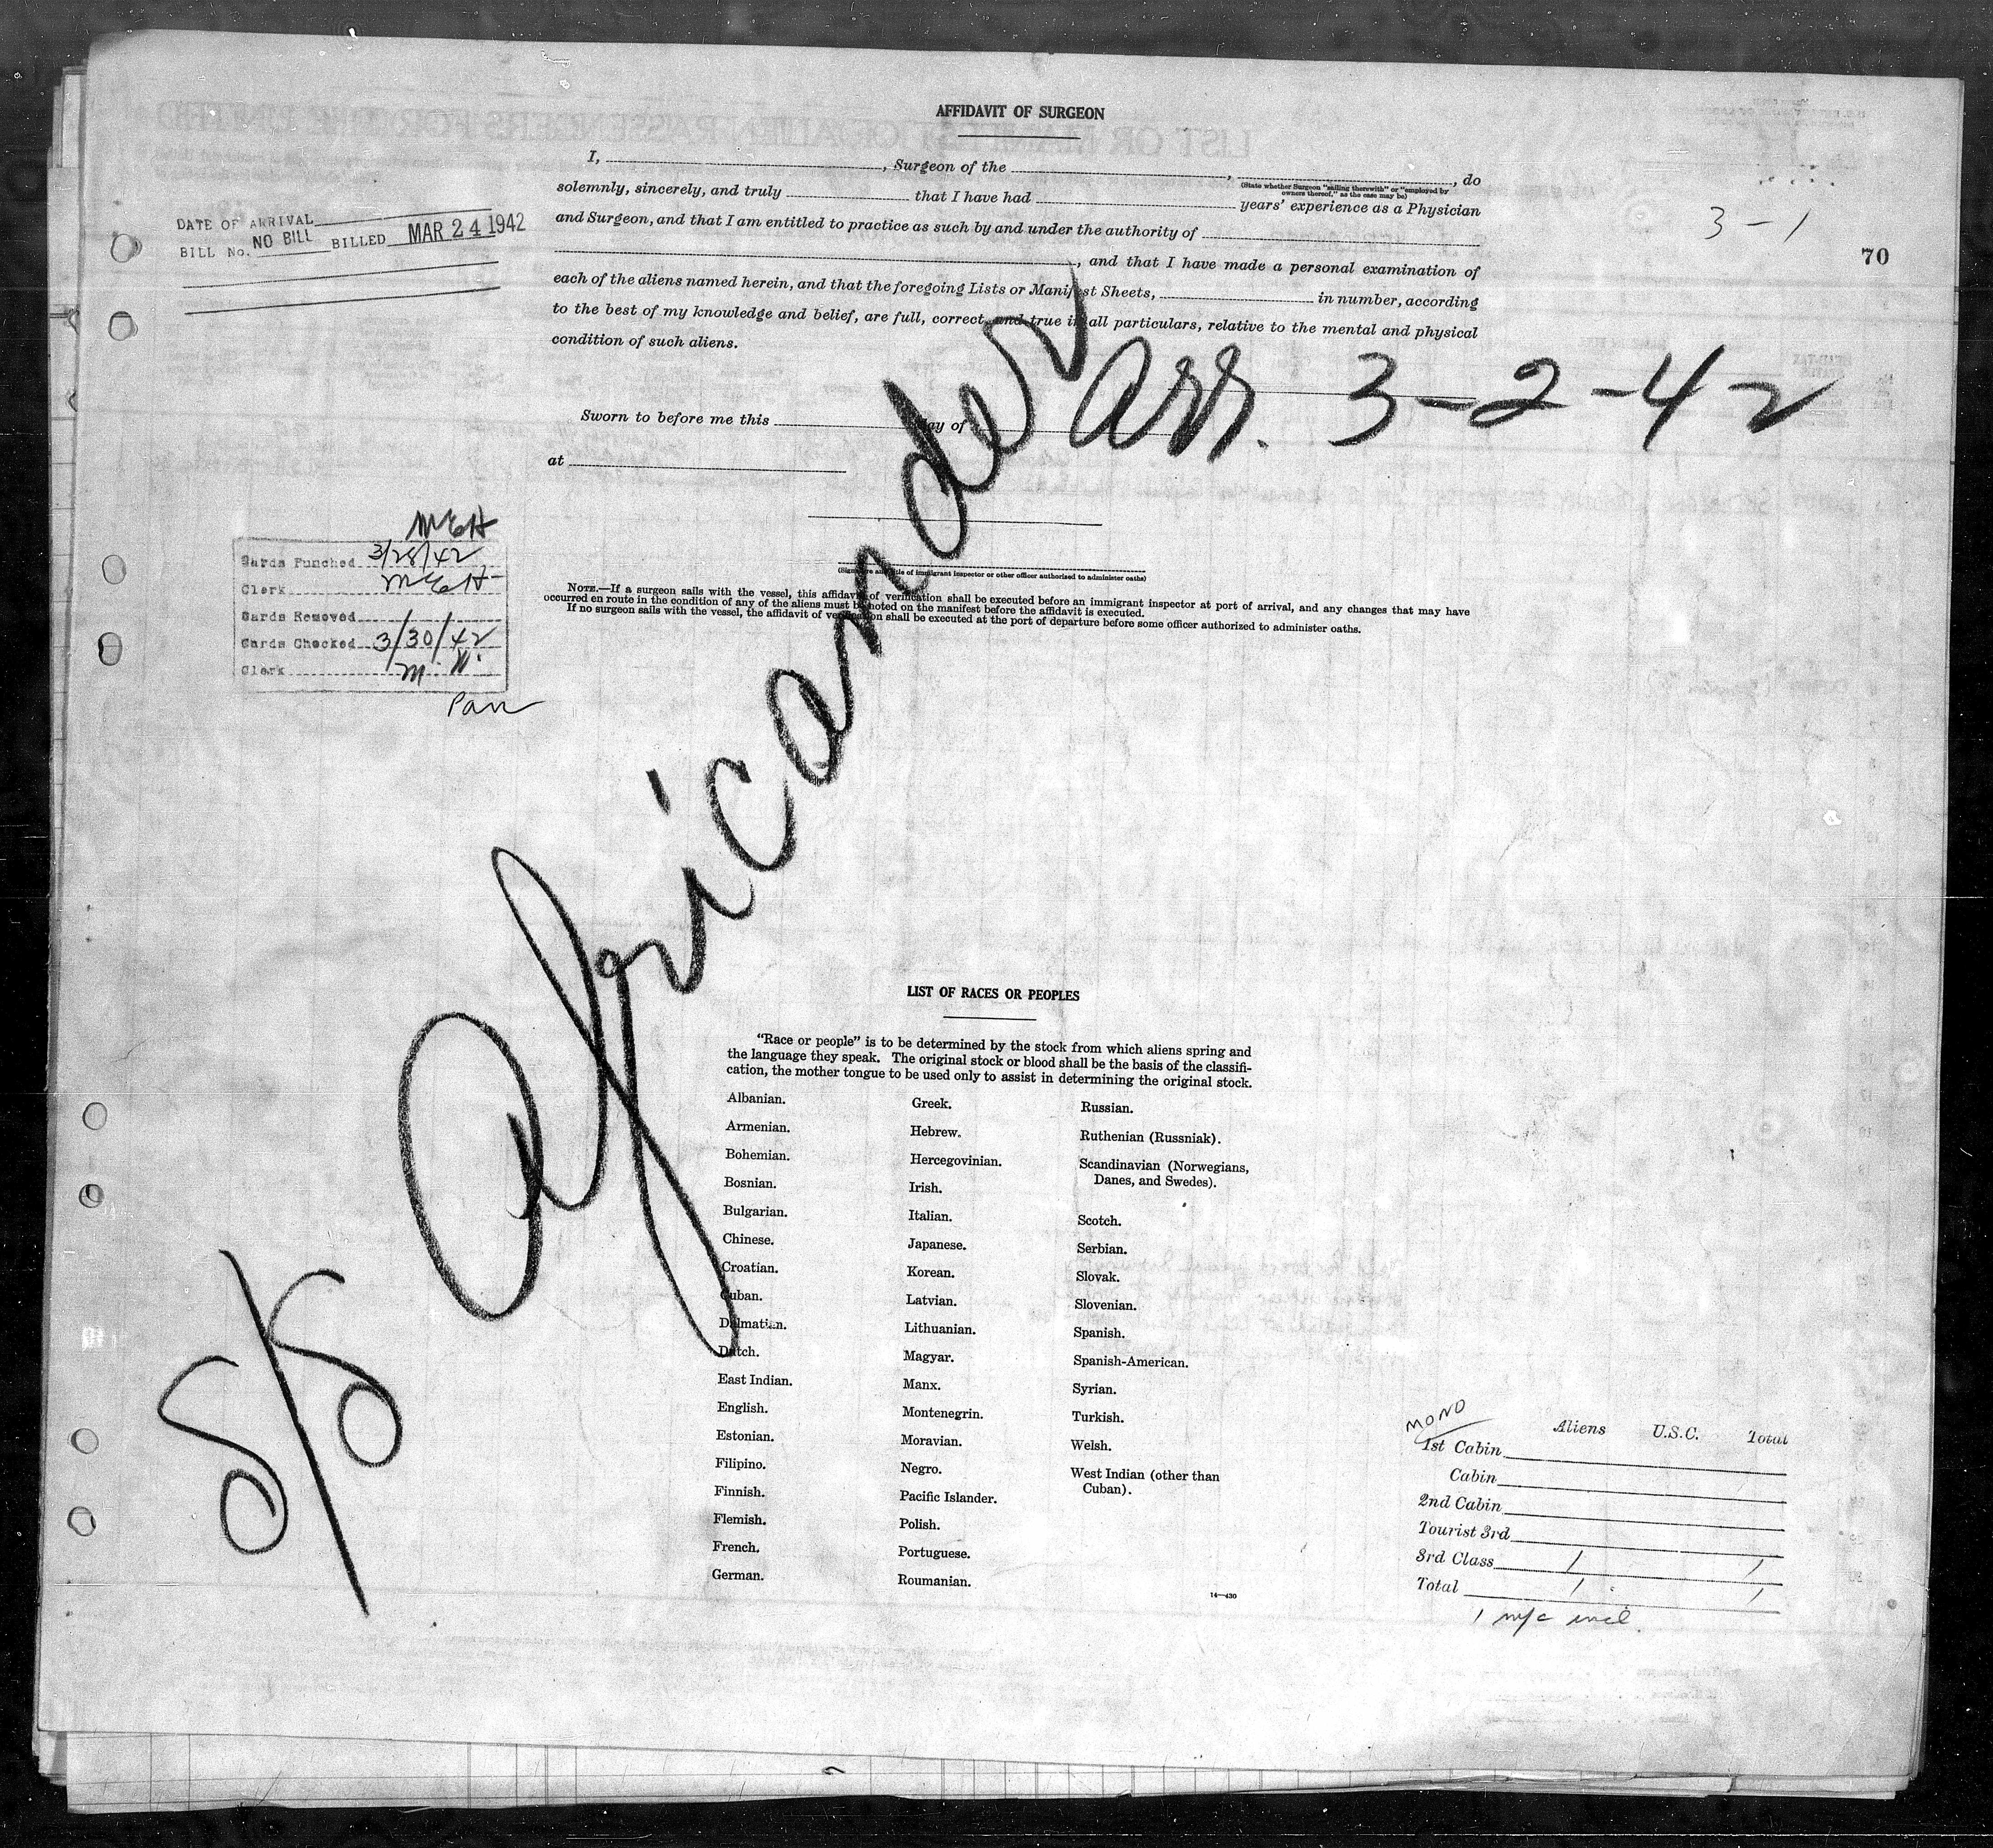 AFFIDAVIT OF SURGEON
I, , Surgeon of the , , do
(State whether Surgeon "sailing therewith" or "employed by
owners thereof," as the case may be)
solemnly, sincerely, and truly that I have had years' experience as a Physician
and Surgeon, and that I am entitled to practice as such by and under the authority of
, and that I have made a personal examination of
each of the aliens named herein, and that the foregoing Lists or Manifest Sheets, in number, according
to the best of my knowledge and belief, are full, correct, and true in all particulars, relative to the mental and physical
condition of such aliens.
DATE OF ARRIVAL
BILL No. NO BILL BILLED MAR 24 1942
3-1
70
arr. 3-2-42
Sworn to before me this day of
at
MEH
Cards Punched 3/28/42
Clerk MEH
Cards Removed
Cards Checked 3/30/42
Clerk M.W.
Pan
(Signature and title of immigrant inspector or other officer authorized to administer oaths)
NOTE.—If a surgeon sails with the vessel, this affidavit of verification shall be executed before an immigrant inspector at port of arrival, and any changes that may have
occurred en route in the condition of any of the aliens must be noted on the manifest before the affidavit is executed.
If no surgeon sails with the vessel, the affidavit of verification shall be executed at the port of departure before some officer authorized to administer oaths.
S/S Africander
LIST OF RACES OR PEOPLES
"Race or people" is to be determined by the stock from which aliens spring and
the language they speak. The original stock or blood shall be the basis of the classifi-
cation, the mother tongue to be used only to assist in determining the original stock.
Albanian.
Armenian.
Bohemian.
Bosnian.
Bulgarian.
Chinese.
Croatian.
Cuban.
Dalmatian.
Dutch.
East Indian.
English.
Estonian.
Filipino.
Finnish.
Flemish.
French.
German.
Greek.
Hebrew.
Hercegovinian.
Irish.
Italian.
Japanese.
Korean.
Latvian.
Lithuanian.
Magyar.
Manx.
Montenegrin.
Moravian.
Negro.
Pacific Islander.
Polish.
Portuguese.
Roumanian.
Russian.
Ruthenian (Russniak).
Scandinavian (Norwegians,
Danes, and Swedes).
Scotch.
Serbian.
Slovak.
Slovenian.
Spanish.
Spanish-American.
Syrian.
Turkish.
Welsh.
West Indian (other than
Cuban).
14—430
MONO
Aliens U.S.C. Total
1st Cabin
Cabin
2nd Cabin
Tourist 3rd
3rd Class 1 1
Total 1 1
1 m/c incl.